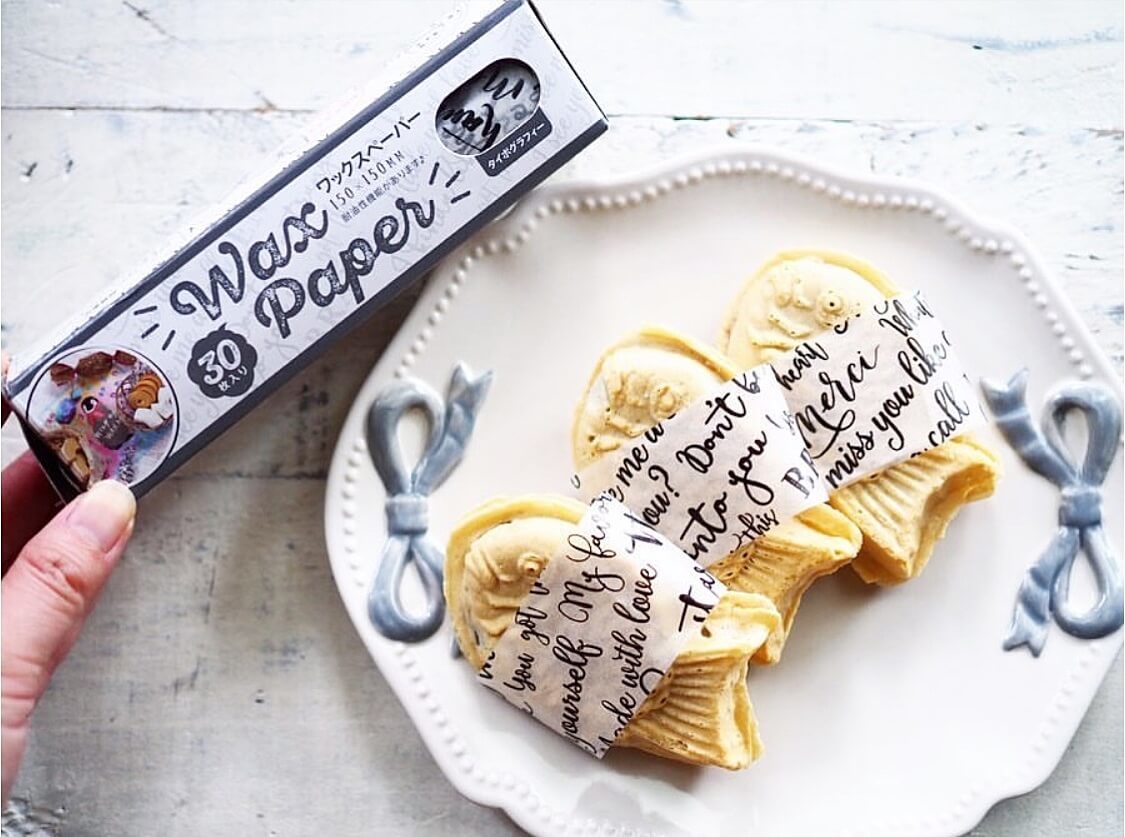 ワックスペーパー
150×150MM
耐油性機能があります♪
Wax
Paper
30
枚入り
タイポグラフィー
heart
Merci
miss you like
call
me
You? Don't
into you
this
You got
yourself My
Made with love